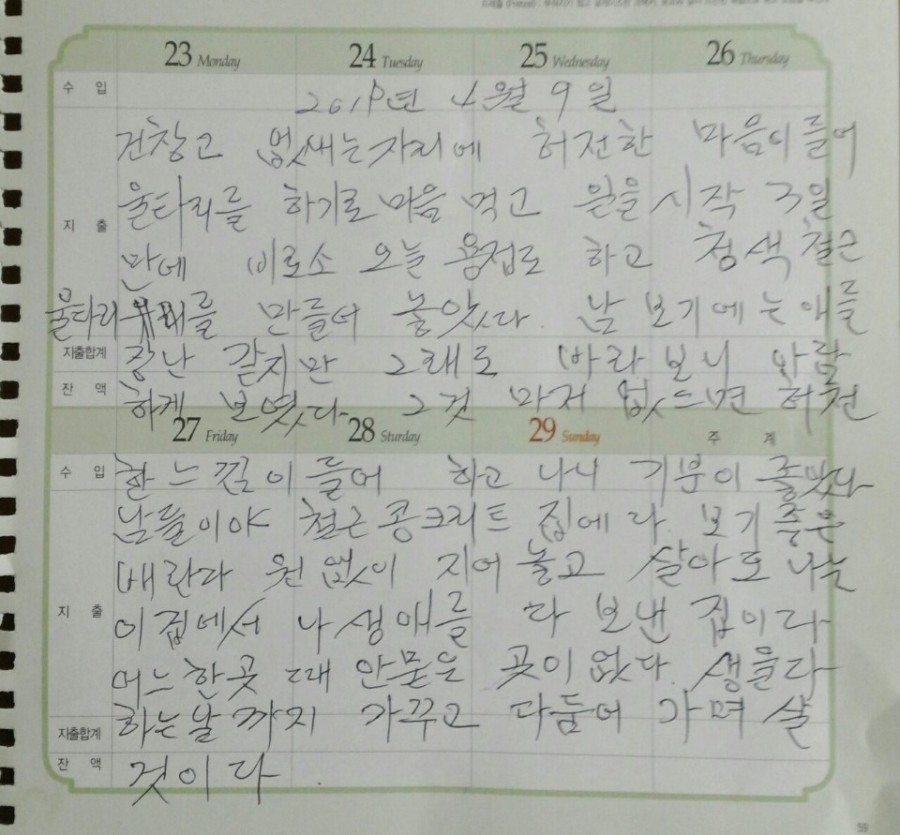 23 Monday 24 Tuesday 25 Wednesday 26 Thursday
수 입 2019년 4월 9일
건창고 없새는자리에 허전한 마음이들어
지 출 울타리를 하기로 마음 먹고 일을 시작 3일
만에 비로소 오늘 용접로 하고 청색 철근
울타리 를 만들어 놓았다. 남 보기에는 애들
지출합계 장난 같지만 그래로 바라보니 아람
잔 액 하게 보였다. 그것 마저 없드면 허전
27 Friday 28 Sturday 29 Sunday 주 계
수 입 한 느낌이 들어 하고 나니 기분이 좋았다
남들이야 철근 콩크리트 집에라. 보기 좋은
배란다 원없이 지어 놓고 살아도 나는
지 출 이집에서 나 생애를 다 보낸 집이다
어느한곳 때 안뭍은 곳이 없다. 생을다
지출합계 하는날까지 가꾸고 다듬어 가며 살
잔 액 것이다.
59